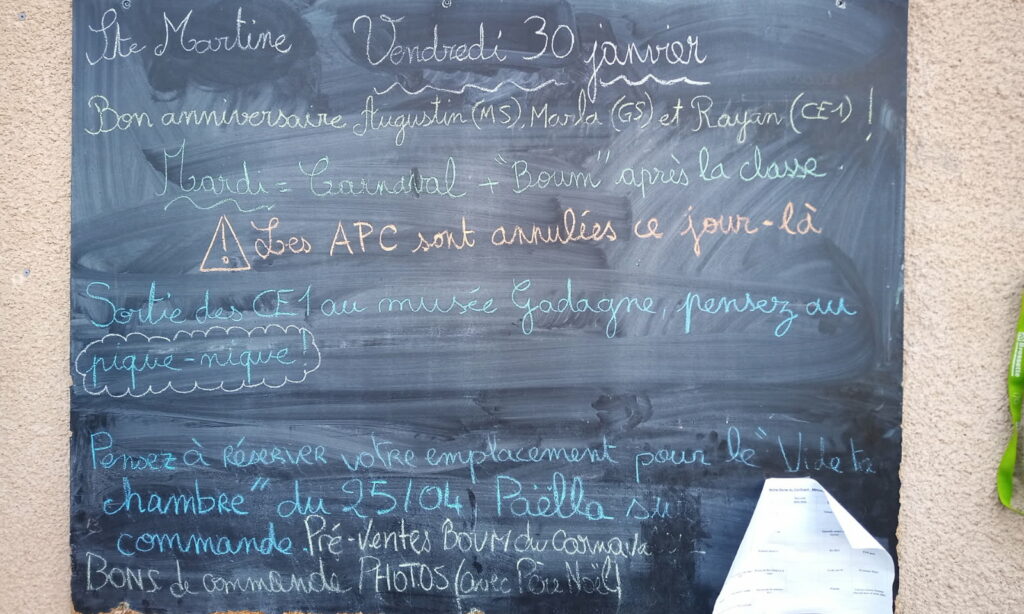 Ste Martine Vendredi 30 janvier
Bon anniversaire Augustin (MS), Marla (GS) et Rayan (CE1) !
Mardi = Carnaval + "Boum" après la classe.
Les APC sont annulées ce jour-là
Sortie des CE1 au musée Gadagne, pensez au
pique-nique!
Pensez à réserver votre emplacement pour le "Vide ta
chambre" du 25/04, Paëlla su
commande. Pré-ventes BOUM du Carnava
BONS de commande PHOTOS (avec Père Noël)